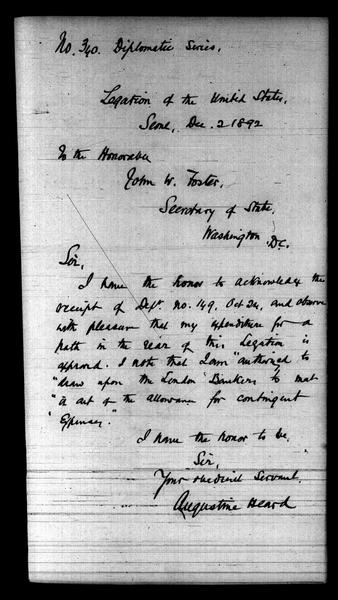 No. 340. Diplomatic Series.
Legation of the United States,
Seoul, Dec. 2 1892
To the Honorable
John W. Foster,
Secretary of State,
Washington, D.C.
Sir,
I have the honor to acknowledge the
receipt of Dept. no. 149, Oct 24, and observe
with pleasure that my expenditure for a
path in the rear of this Legation is
approved. I note that I am "authorized to
"draw upon the London Bankers to
" a of the allowance for contingent
" Expenses."
I have the honor to be,
Sir,
Your obedient Servant,
Augustine Heard